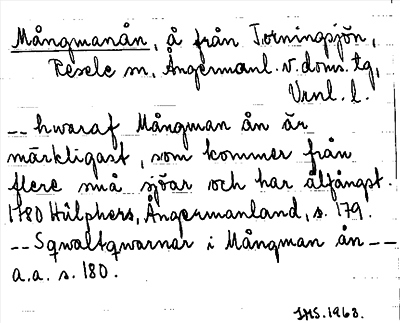 Mångmanån, å från Torningsjön,
Resele sn, Ångermanl. v. doms. tg,
Vrnl. l.
-- hwaraf Mångman ån är
märkligast, som kommer från
flere små sjöar och har ålfångst.
1780 Hülphers, Ångermanland, s. 179.
-- Sqwaltqwarnar i Mångman ån --
a.a. s. 180.
JHS. 1968.